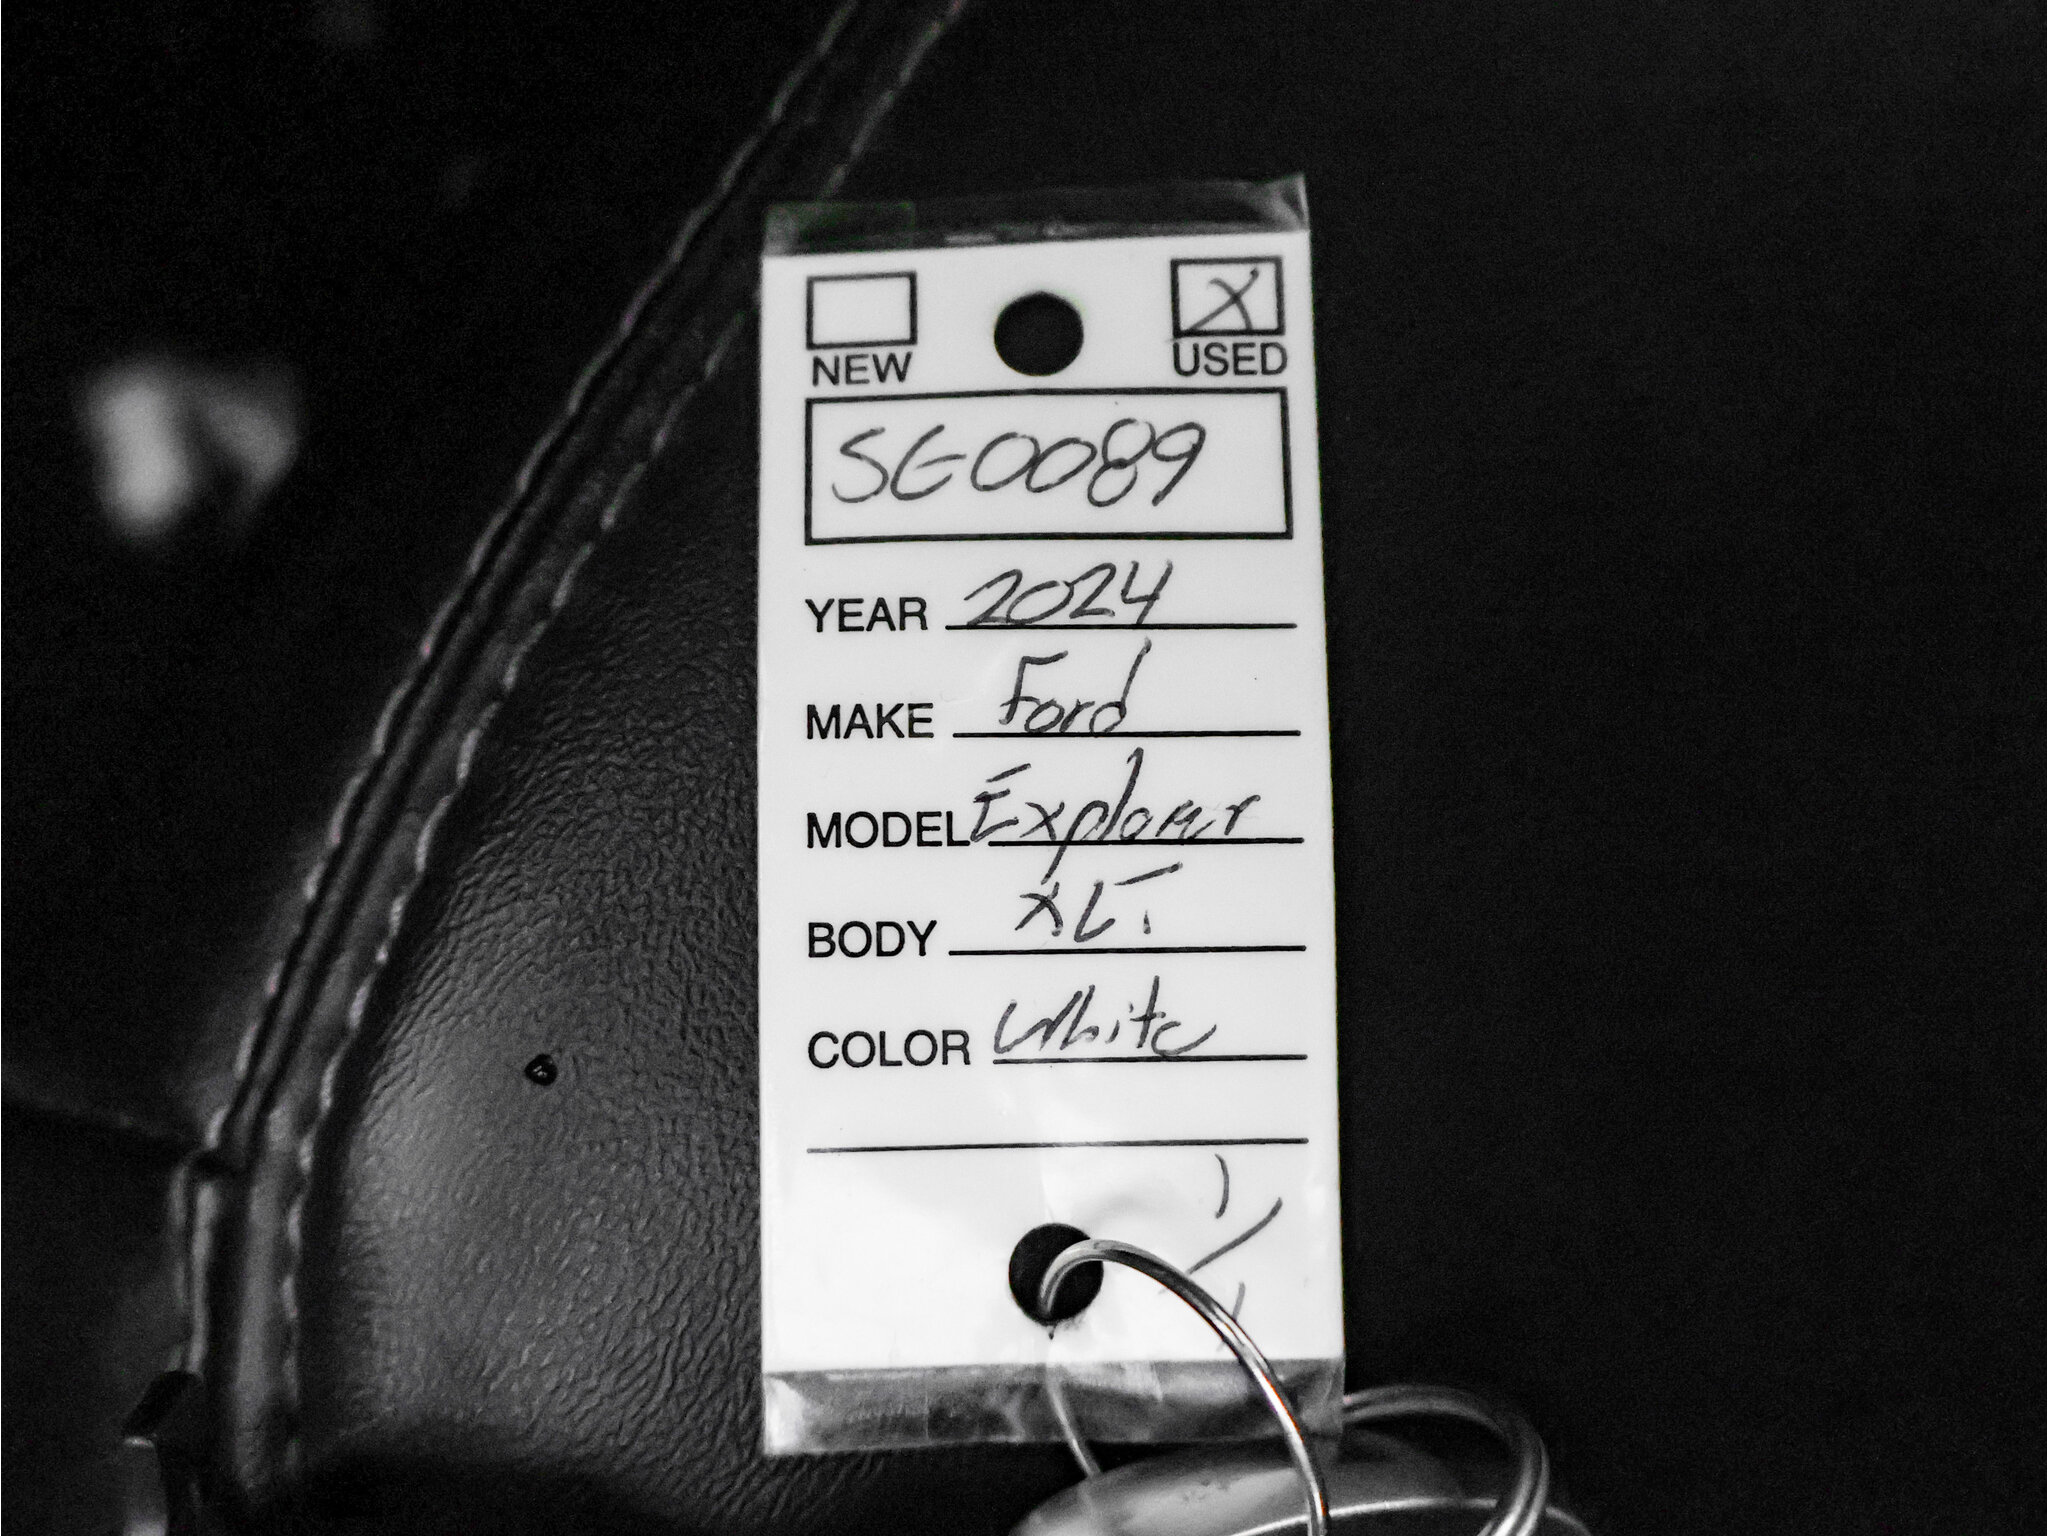 NEW X USED
SE0089
YEAR 2024
MAKE Ford
MODEL Explorer
BODY XLT
COLOR White